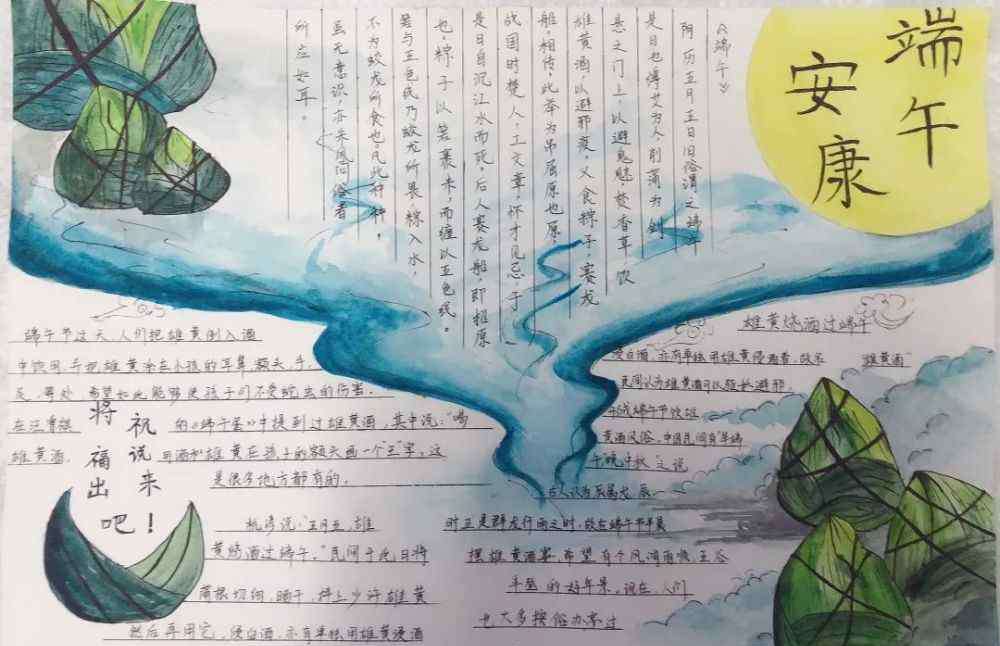 端午
安康
《端午》
阴历五月五日旧俗谓之端午
是日也缚艾为人削蒲为剑
悬之门上，以避鬼魅，焚香草，饮
雄黄酒，以避邪疫，又食粽子，赛龙
船，相传，此举为吊屈原也，原，
战国时楚人，工文章，怀才见忌，于
是日自沉江水而死，后人赛龙船，即招原
也，粽子以箬裹米，而缠以五色线。
箬与五色线乃蛟龙所畏，粽入水，
不为蛟龙所食也，凡此种种，
虽无意识，亦朱风问俗者
所应知耳。
端午节这天，人们把雄黄倒入酒
中饮用，并把雄黄涂在小孩的耳鼻，额头，手，
足，等处，希望如此能够使孩子们不受蛇虫的伤害。
在汪曾祺的《端午蛋》中提到过雄黄酒，其中说："喝
雄黄酒，用酒和雄黄在孩子的额头画一个"王"字，这
是很多地方都有的。
将祝
福说
出来
吧！
杭谚说："五月五，雄
黄烧酒过端午。"民间于此日将
蒲根切细，晒干，拌上少许雄黄
然后再用它，浸白酒，亦有单独用雄黄浸酒
雄黄烧酒过端午
浸白酒，亦有单独用雄黄浸酒者，故名"雄黄酒"
民间认为雄黄酒可以驱秋避邪，
形成端午节饮雄
黄酒风俗，中国民间有"早端
午晚中秋"之说
古人认为辰属龙，辰
时正是群龙行雨之时，故在端午节早晨
摆雄黄酒宴，希望有个风调雨顺，五谷
丰登的好年景，现在，人们
也大多按俗办席过